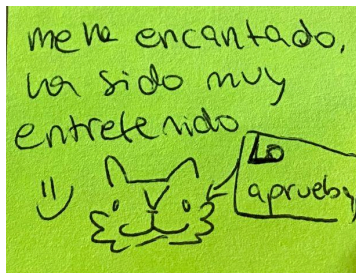 me ha encantado,
ha sido muy
entretenido
Lo
apruebo